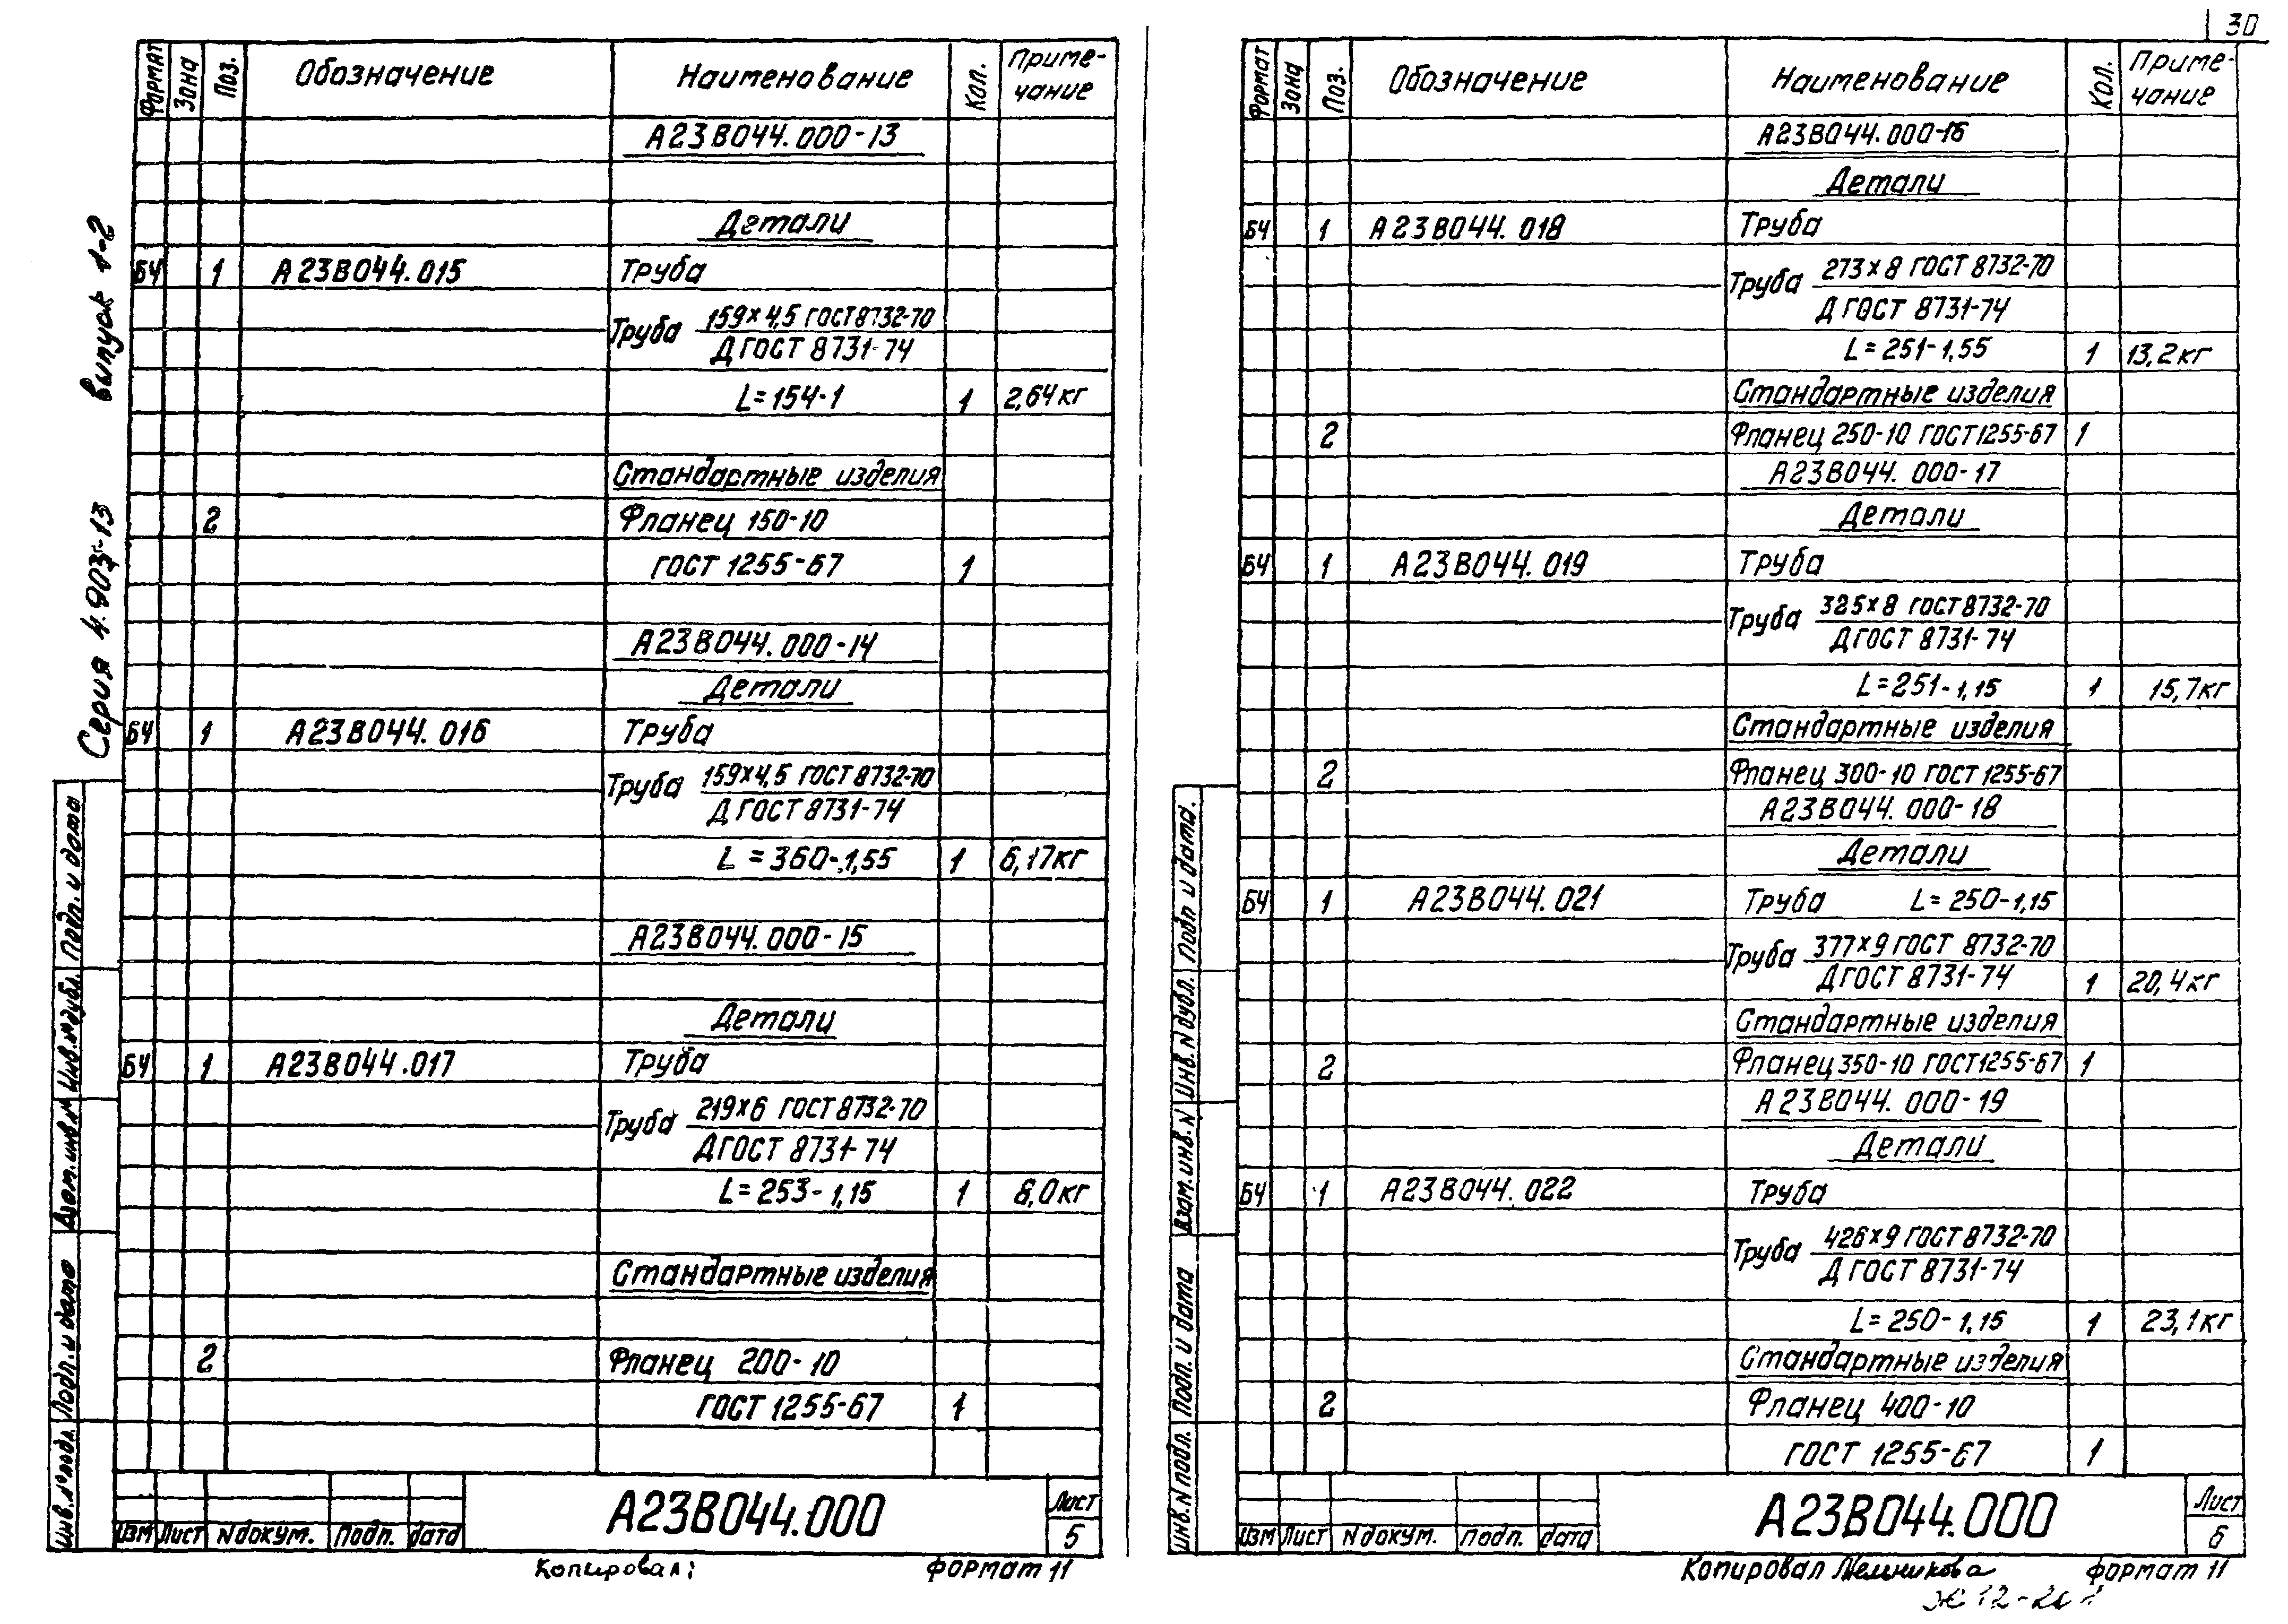 30
Серия 4.903-13 выпуск 1-2
Формат Зона Поз. Обозначение Наименование Кол. Приме-
чание
А23В044.000-13
Детали
БЧ 1 А23В044.015 Труба
Труба 159×4,5 ГОСТ 8732-70
Д ГОСТ 8731-74
L=154-1 1 2,64кг
Стандартные изделия
2 Фланец 150-10
ГОСТ 1255-67 1
А23В044.000-14
Детали
БЧ 1 А23В044.016 Труба
Труба 159×4,5 ГОСТ 8732-70
Д ГОСТ 8731-74
L=360-1,55 1 6,17кг
А23В044.000-15
Детали
БЧ 1 А23В044.017 Труба
Труба 219×6 ГОСТ 8732-70
Д ГОСТ 8731-74
L=253-1,15 1 8,0кг
Стандартные изделия
2 Фланец 200-10
ГОСТ 1255-67 1
Инв.№подл. Подп. и дата Взам.инв.№ Инв.№дубл. Подп. и дата
Изм Лист № докум. Подп. дата
А23В044.000
Лист
5
Копировал: Формат 11
Формат Зона Поз. Обозначение Наименование Кол. Приме-
чание
А23В044.000-16
Детали
БЧ 1 А23В044.018 Труба
Труба 273×8 ГОСТ 8732-70
Д ГОСТ 8731-74
L=251-1,55 1 13,2кг
Стандартные изделия
2 Фланец 250-10 ГОСТ 1255-67 1
А23В044.000-17
Детали
БЧ 1 А23В044.019 Труба
Труба 325×8 ГОСТ 8732-70
Д ГОСТ 8731-74
L=251-1,15 1 15,7кг
Стандартные изделия
2 Фланец 300-10 ГОСТ 1255-67
А23В044.000-18
Детали
БЧ 1 А23В044.021 Труба L=250-1,15
Труба 377×9 ГОСТ 8732-70
Д ГОСТ 8731-74 1 20,4кг
Стандартные изделия
2 Фланец 350-10 ГОСТ 1255-67 1
А23В044.000-19
Детали
БЧ 1 А23В044.022 Труба
Труба 426×9 ГОСТ 8732-70
Д ГОСТ 8731-74
L=250-1,15 1 23,1кг
Стандартные изделия
2 Фланец 400-10
ГОСТ 1255-67 1
Инв.N подл. Подп. и дата Взам.инв.N Инв.N дубл. Подп и дата.
Изм Лист N докум. Подп. дата
А23В044.000
Лист
6
Копировал Формат 11